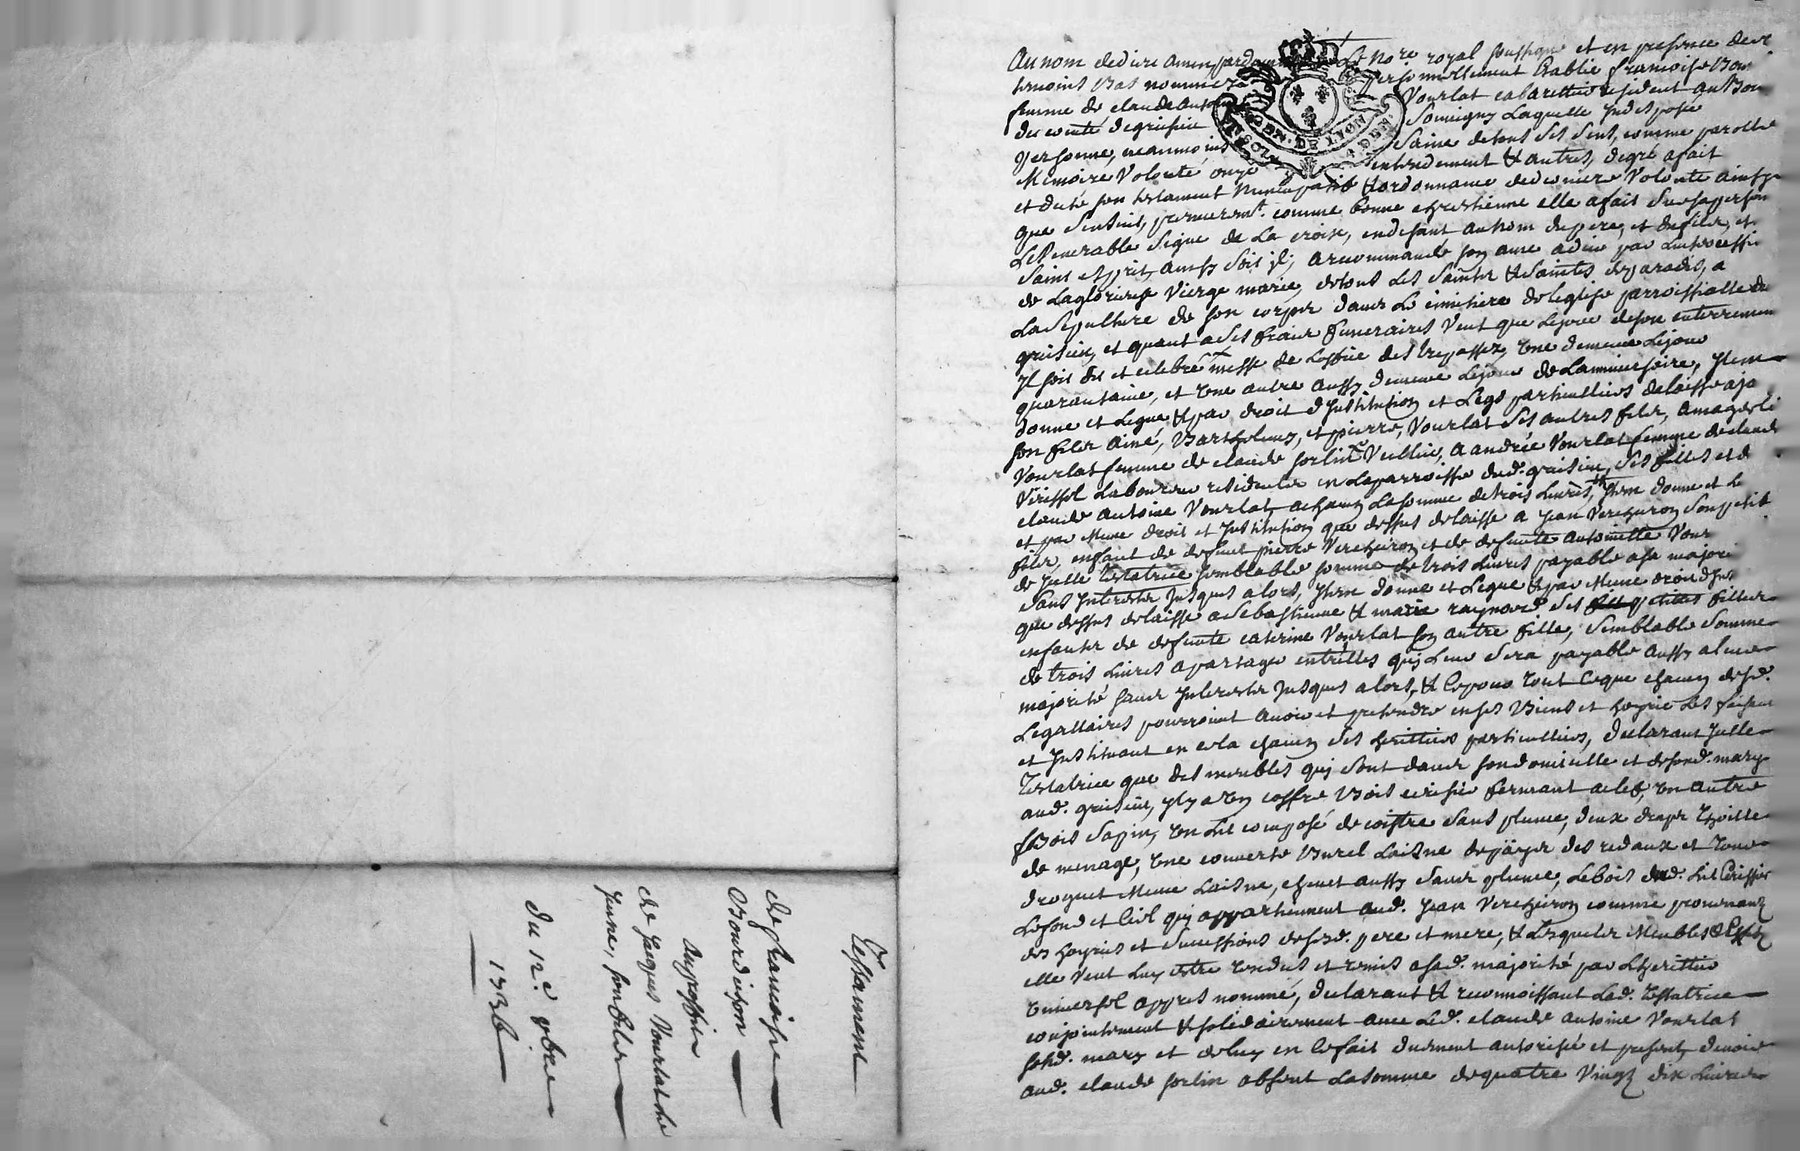 Testament
de francoise
Bourdignon
au proffit
de Jacques Vourlat le
jeune, son fils
du 12e. 9bre
1736
GEN. DE LYON
Au nom de dieu amen, pardevant Le Nore royal soussigné et en presence des
temoins Bas nommez personnellement Establie francoise
femme de claude antoine Vourlat cabarettier residant au Bourg
du comté de grisieu Laquelle Indisposée
personne, neanmoins Saine de tous ses sens, comme parolle
Memoire Volonté entendement & autres, degré a fait
et dicté son testament nuncupatif & ordonnance de derniere Volonté ainsy
que s'ensuit, premieremt. comme bonne chrestienne elle a fait sur sa personne
Le Venerable signe de La croix, en disant au nom du pere, et du fils, et
Saint esprit, ainsy soit jl, a recommandé son ame a dieu par L'intercession
de La glorieuse Vierge marie, de tous Les Saints & Saintes de paradis, a
La Sepulture de son corps dans Le cimetiere de leglise parroissialle de
grisieu, et quant a ses fraix funeraires Veut que Le jour de son enterrement
Il soit dit et celebré messe de L'office des trepassez, Une dememe Le jour
quarantaine, et Une autre aussy dememe Le jour de L'anniversaire, Item
donne et Legue & par droit d'Institution et Legs particulliers delaisse a ja
son fils ainé, Barthelemy, et pierre, Vourlat ses autres fils, a magdel
Vourlat femme de claude Veillieu, a andrée Vourlat femme de claude
Verissel Laboureur residents en La parroisse dud. grisieu, ses filles et a
claude antoine Vourlat, a chacun La somme de trois Livres, Item donne et Le
et par Meme droit et Institution que dessus delaisse a jean Vercheron son petit
fils, enfant de deffunt pierre Vercheron et de deffunte antoinette Vour
de jcelle testatrice semblable somme de trois Livres payable a sa majori
Sans Interests jusques alors, Item donne et Legue & par Meme droit d'Ins
que dessus delaisse a Sebastienne & marie raynard ses petittes filles
enfants de deffunte caterine Vourlat son autre fille, Semblable Somme
de trois Livres a partager entr'elles qui Leur sera payable aussy a leur
majorité sans Interests jusques alors, & ce pour tout ce que chacun desd.
Legattaires pourroient avoir et pretendre en ses Biens et hoyrie Les faisant
et Instituant en cela chacun ses heritiers particulliers, declarant jcelle
testatrice que des meubles qui sont dans son domicille et de sond. mary
aud. grisieu, jl y a Un coffre Bois cerisier fermant a clef, Un autre
Bois Sapin, Un Lit composé de coittre sans plume, deux draps thoille
de menage, Une couverte Burel Laisne de païs, des rideaux et tour
droguet Meme Laisne, chevet aussy sans plume, Le Bois dud. Lit cerisier
Le fond et Ciel qui appartiennent aud. jean Vercheron comme provenant
des hoyries et successions de sesd. pere et mere, & Lesquels Meubles & Effets
elle Veut Luy estre rendus et remis a sad. majorité par L'heritier
Universel apprès nommé, declarant & reconnoissant Lad. testatrice
conjointement & solidairement avec Led. claude antoine Vourlat
sond. mary et de luy en ce fait duement autorisée et present, devoir
aud. claude absent La somme de quatre Vingt dix Livres